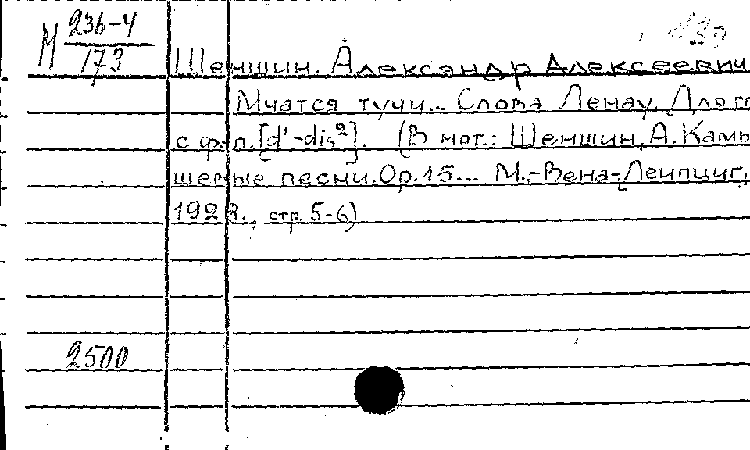 М 236-4
173
Шеншин, Александр Алексеевич
Мчатся тучи... Слова Ленау. Для г
с ф.-п. [d'-dis²]. (В нот.: Шеншин, А. Кам
шевые песни. Op. 15... М.-Вена-Лейпциг,
1928., стр. 5-6)
2500